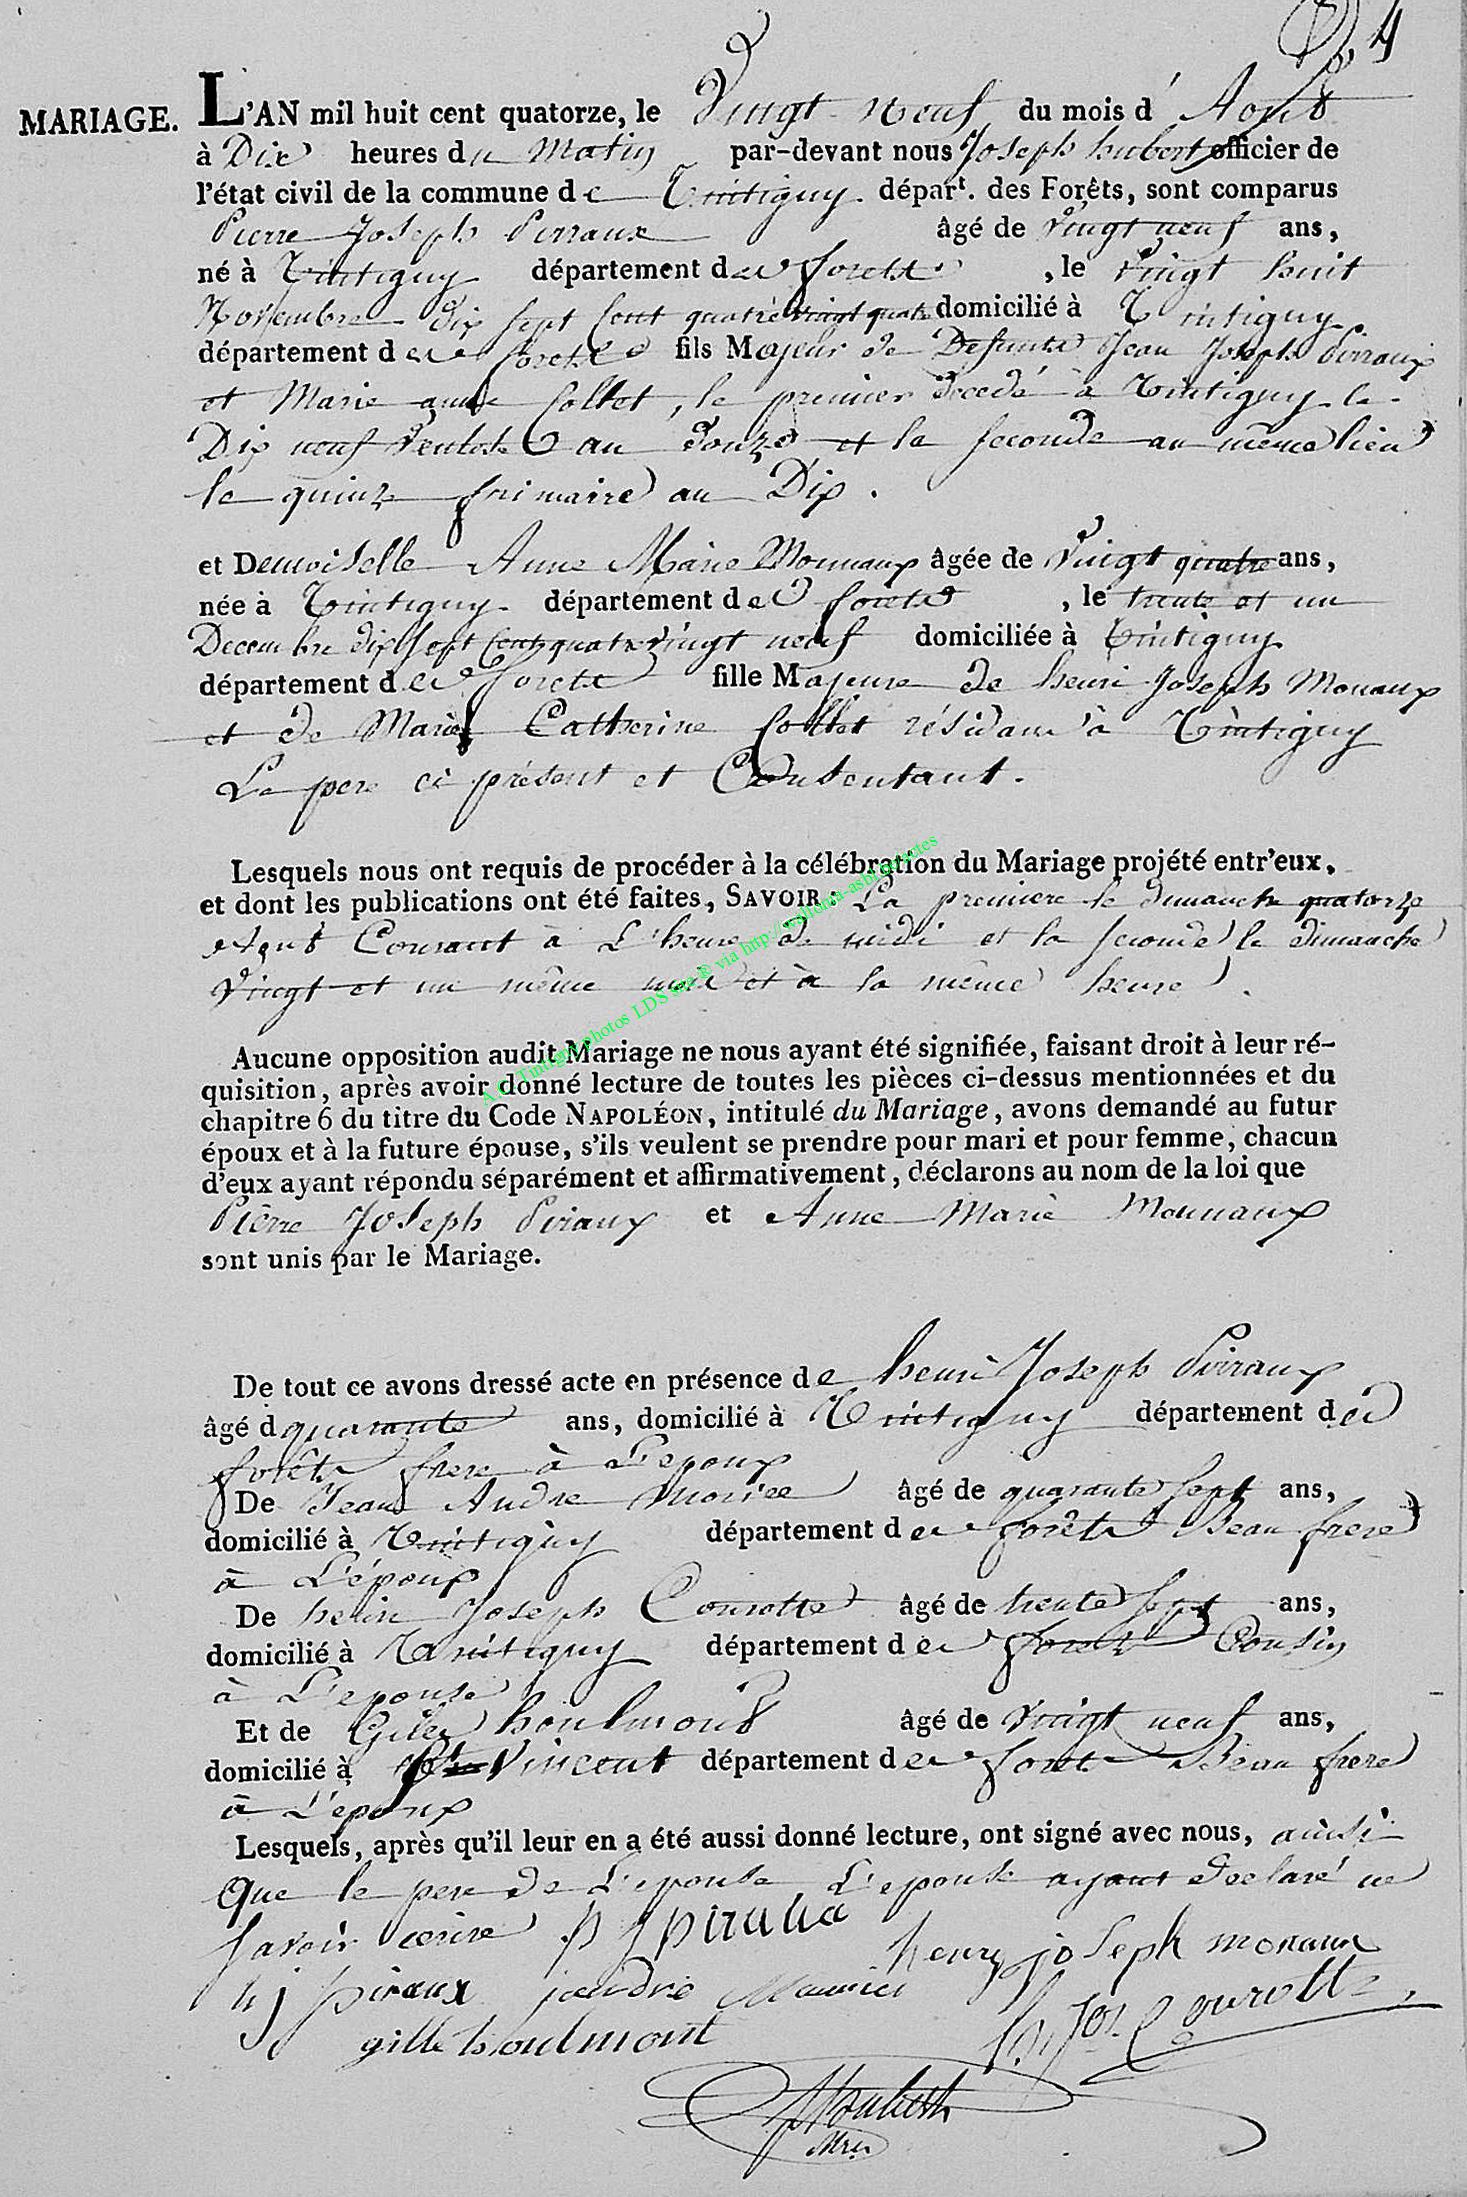 4
MARIAGE. L'AN mil huit cent quatorze, le Vingt neuf du mois d' Aout
à Dix heures du Matin par-devant nous Joseph hubert officier de
l'état civil de la commune de Tintigny départ. des Forêts, sont comparus
Pierre Joseph Pirraux âgé de vingt neuf ans,
né à Tintigny département des forets, le vingt huit
Novembre dix sept Cent quatre vingt quatre domicilié à Tintigny
département des forets fils Majeur de Defunts Jean Joseph Pirraux
et Marie anne Collet, le premier decedé à Tintigny le
Dix neuf Ventose au douze et la seconde au même lieu
le quinze frimaire au Dix.
et Demoiselle Anne Marie Monnaux âgée de Vingt quatre ans,
née à Tintigny département des forets, le trente et un
Decembre dix sept Cent quatre vingt neuf domiciliée à Tintigny
département des forets fille Majeure de henri Joseph Monaux
et de Marie Catherine Collet résidans à Tintigny
Le pere ci présent et Consentant.
Lesquels nous ont requis de procéder à la célébration du Mariage projété entr'eux,
et dont les publications ont été faites, SAVOIR: La premiere le dimanche quatorze
Aout Courant à L'heure de midi et la seconde le dimanche
Vingt et un même mois et à la même heure.
A.C. Tintigny photos LDS site ® via http://wallonia-asbl.be/actes
Aucune opposition audit Mariage ne nous ayant été signifiée, faisant droit à leur ré-
quisition, après avoir donné lecture de toutes les pièces ci-dessus mentionnées et du
chapitre 6 du titre du Code NAPOLÉON, intitulé du Mariage, avons demandé au futur
époux et à la future épouse, s'ils veulent se prendre pour mari et pour femme, chacun
d'eux ayant répondu séparément et affirmativement, déclarons au nom de la loi que
Pierre Joseph Piraux et Anne Marie Monnaux
sont unis par le Mariage.
De tout ce avons dressé acte en présence de henri Joseph Pirraux
âgé d quarante ans, domicilié à Tintigny département des
forêts frere à L'epoux
De Jean Andre Moriee âgé de quarante sept ans,
domicilié à Tintigny département des forêts Beau frere
à L'époux
De henri Joseph Courotte âgé de trente sept ans,
domicilié à Tintigny département des forets Cousin
à L'epouse
Et de Giles houlmont âgé de vingt neuf ans,
domicilié à St Vincent département des forets Beau frere
à L'epoux
Lesquels, après qu'il leur en a été aussi donné lecture, ont signé avec nous, ainsi
Que le pere de L'epouse L'epouse ayant declaré ne
savoir ecrire P J piraux henry joseph monaux
h j piraux jandre Mauriei h. Jos. Courotte
gille houlmont